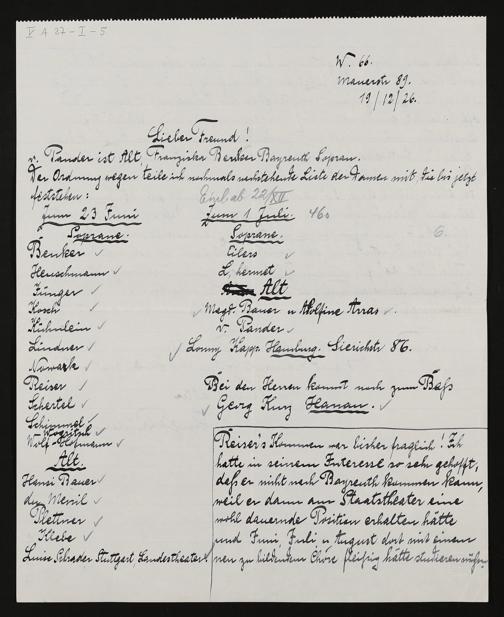 V A 27-I-5
W. 66.
Mauerstr 89.
19/12/26.
Lieber Freund!
v. Pander ist Alt, Franziska Benker Bayreuth Sopran.
Der Ordnung wegen teile ich nochmals nachstehende Liste der Damen mit, die bis jetzt
feststehen:
Engl. ab 22/XII
zum 23 Juni
Soprane.
Benker
Henschmann
Junger
Kosch
Kühnlein
Lindner
Nowak
Reiser
Schertel
Schimmel
Wolf-Hofmann
Alt.
Hansi Bauer
du Mesnil
Plettner
Klebe
Luise Schrader Stuttgart Landestheater
zum 1 Juli. 460
6.
Soprane.
Eilers
L'hermet
Alt
Magd. Bauer u Adolfine Arras.
v. Pander
Lonny Kapp. Hamburg. Sierichstr 86.
Bei den Herren kommt noch zum Baß
Georg Kunz Hanau.
Reiser's Kommen war bisher fraglich! Ich
hatte in seinem Interesse so sehr gehofft,
daß er nicht nach Bayreuth kommen kann,
weil er dann am Staatstheater eine
wohl dauernde Position erhalten hätte
und Juni Juli u August dort mit einem
neu zu bildenden Chore fleißig hätte studieren müssen